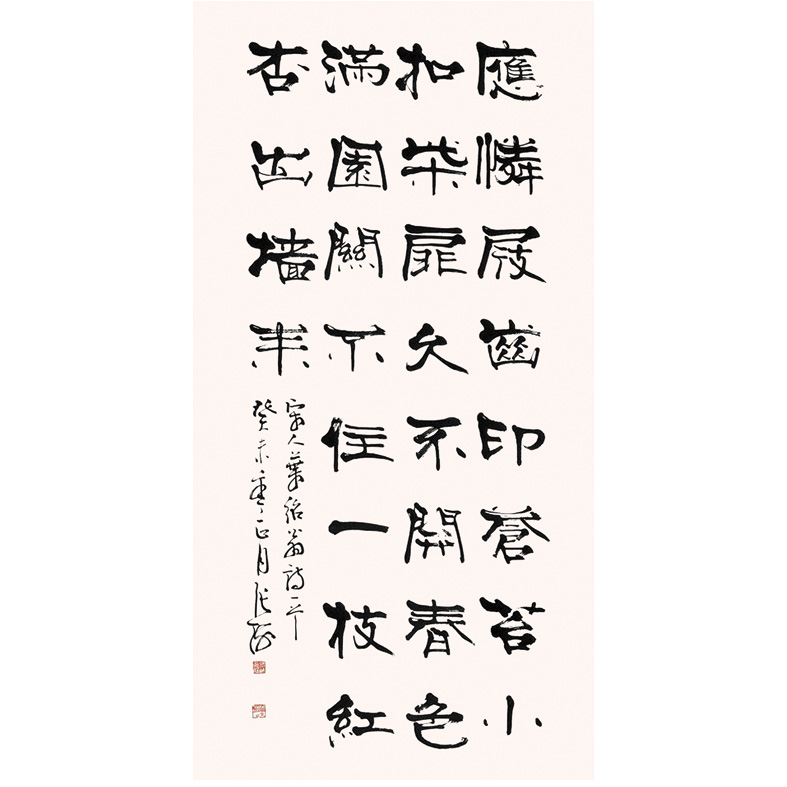 應憐屐齒印蒼苔小
扣柴扉久不開春色
滿園關不住一枝紅
杏出墙来
宋人葉紹翁詩一
癸未正月張海